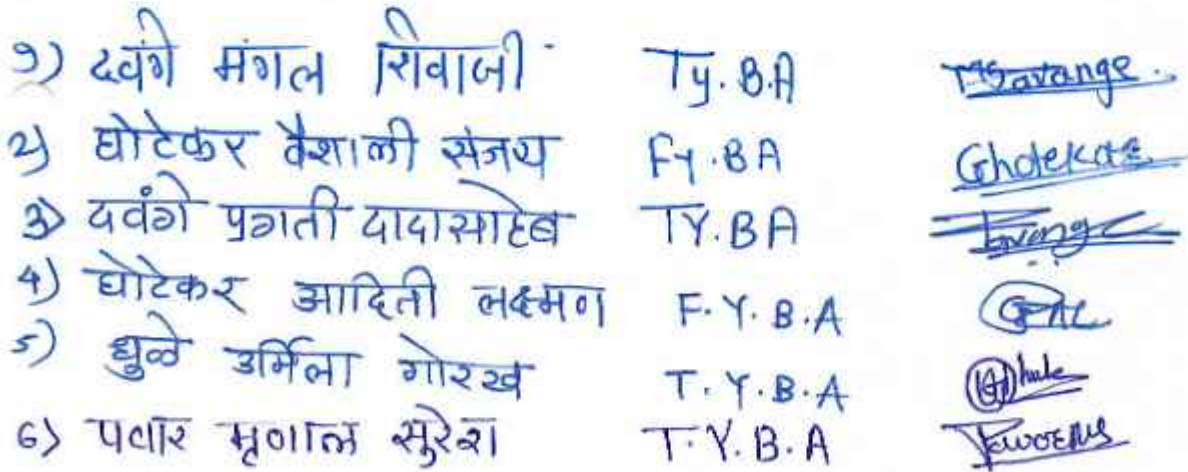 १) दवंगे मंगल शिवाजी Ty. B.A
२) घोटेकर वैशाली संजय Fy. B A Ghotekar
३) दवंगे प्रगती दादासाहेब TY. B A
४) घोटेकर आदिती लक्ष्मण F. Y. B. A
५) धुळे उर्मिला गोरख T. Y. B. A
६) पवार मृणाल सुरेश T. Y. B. A